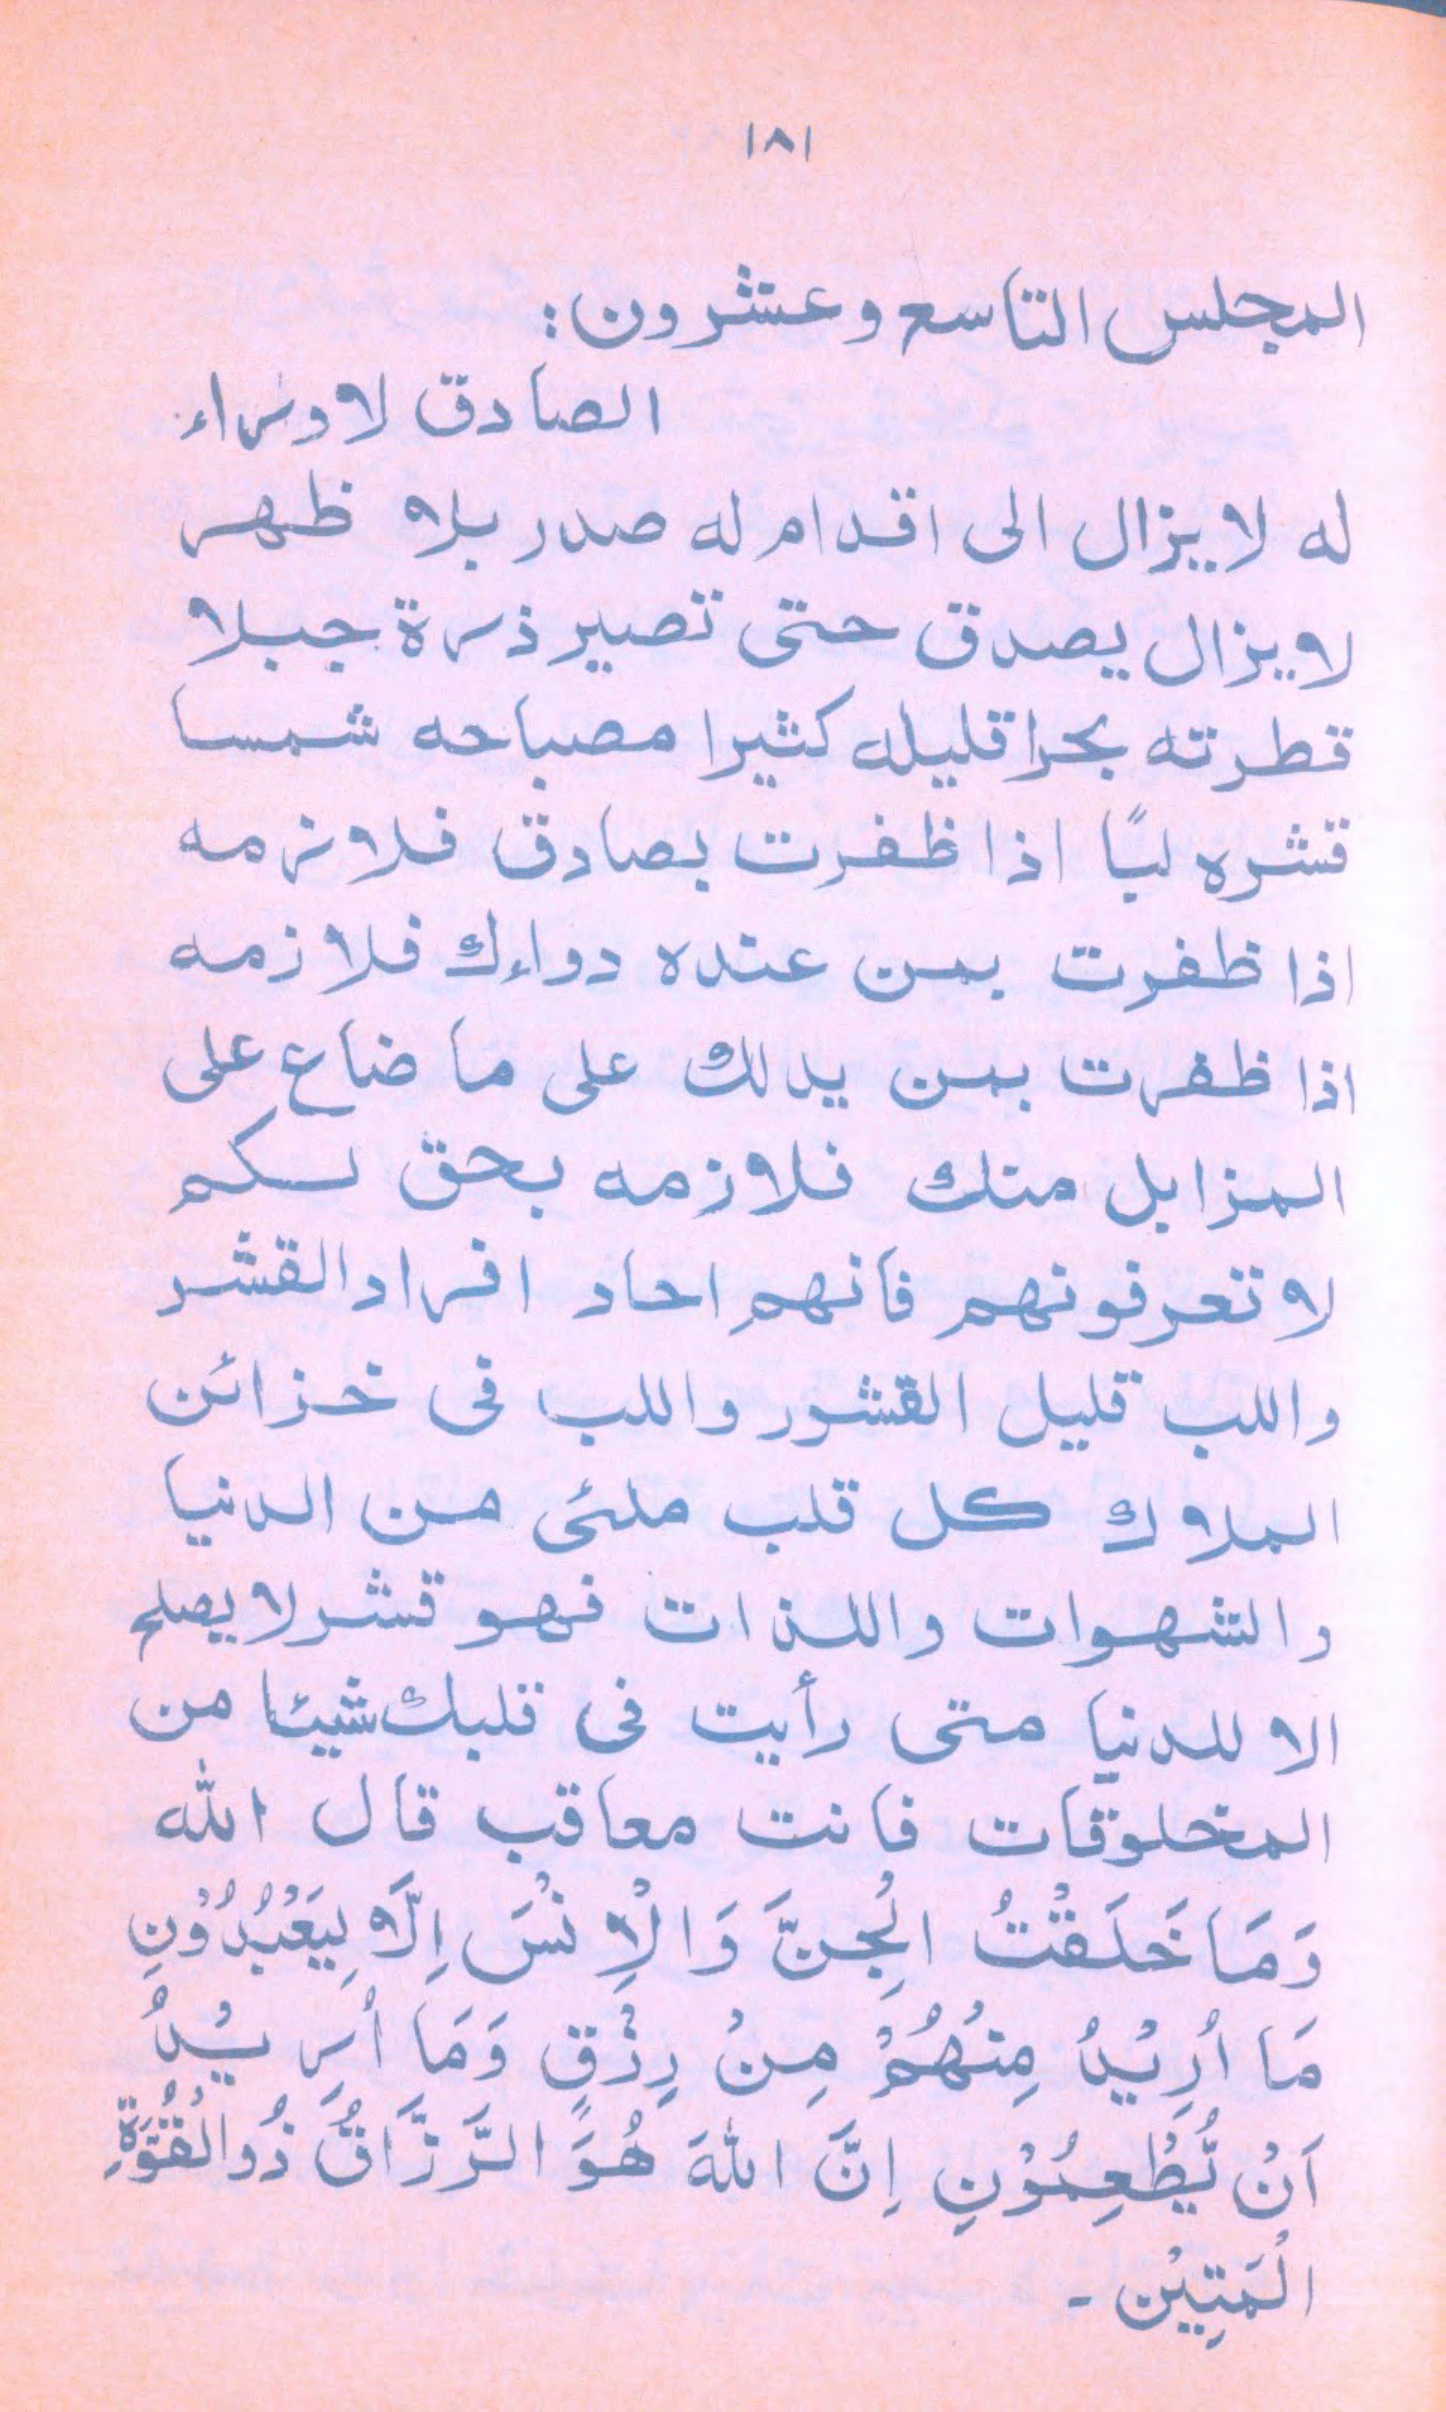 ١٨١
المجلس التاسع وعشرون:
الصادق لا وراء
له لا يزال الى اقدام له صدر بلا ظهر
لا يزال يصدق حتى تصير ذرة جبلا
قطرته بحرا قليله كثيرا مصباحه شمسا
قشره لبًا اذا ظفرت بصادق فلازمه
اذا ظفرت بمن عنده دواءك فلازمه
اذا ظفرت بمن يدلك على ما ضاع على
المزابل منك فلازمه بحق لسكم
لا تعرفونهم فانهم احاد افراد القشر
واللب قليل القشور واللب فى خزائن
الملاوك كل قلب ملئى من الدنيا
والشهوات واللذات فهو قشر لا يصلح
الا للدنيا متى رأيت فى قلبك شيئا من
المخلوقات فانت معاقب قال الله
وَمَا خَلَقْتُ الْجِنَّ وَالْاِنْسَ اِلَّا لِيَعْبُدُوْنِ
مَا اُرِيْدُ مِنْهُمْ مِنْ رِزْقٍ وَمَا اُرِيْدُ
اَنْ يُّطْعِمُوْنِ اِنَّ اللهَ هُوَ الرَّزَّاقُ ذُوالْقُوَّةِ
الْمَتِيْنُ ـ